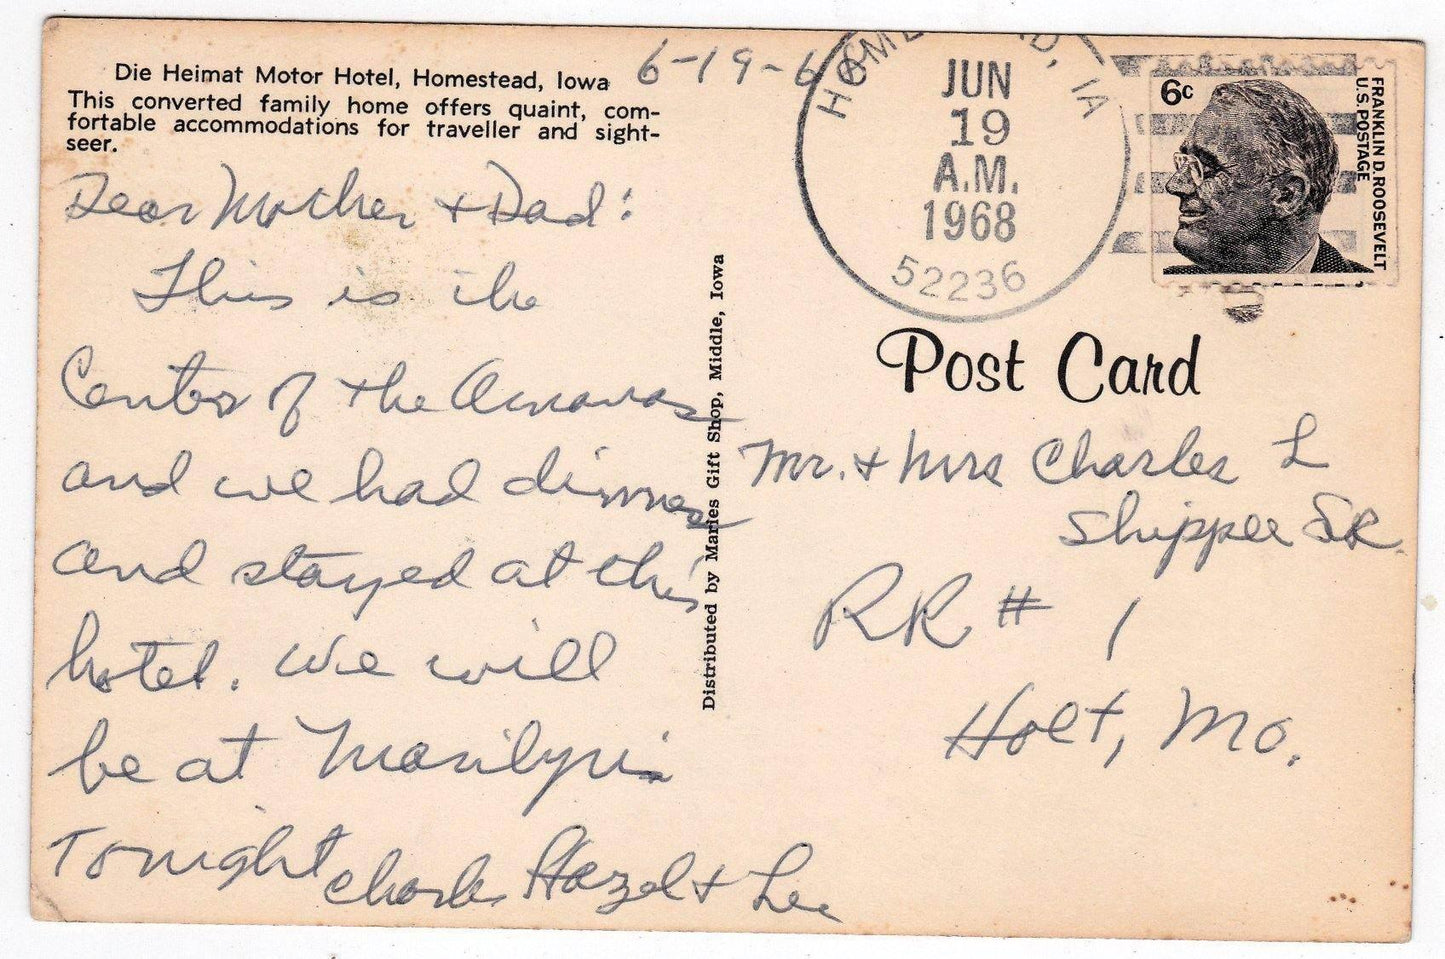 Die Heimat Motor Hotel, Homestead, Iowa
This converted family home offers quaint, com-
fortable accommodations for traveller and sight-
seer.
6-19-68
Dear Mother + Dad:
This is the
Center of the Amanas
and we had dinner
and stayed at this
hotel. We will
be at Marilyn's
Tonight
Charles Hazel + Lee
Distributed by Maries Gift Shop, Middle, Iowa
HOMESTEAD, IA
JUN
19
A.M.
1968
52236
6c
FRANKLIN D. ROOSEVELT
U.S. POSTAGE
Post Card
Mr. + Mrs Charles L
Shippee SR.
RR # 1
Holt, Mo.